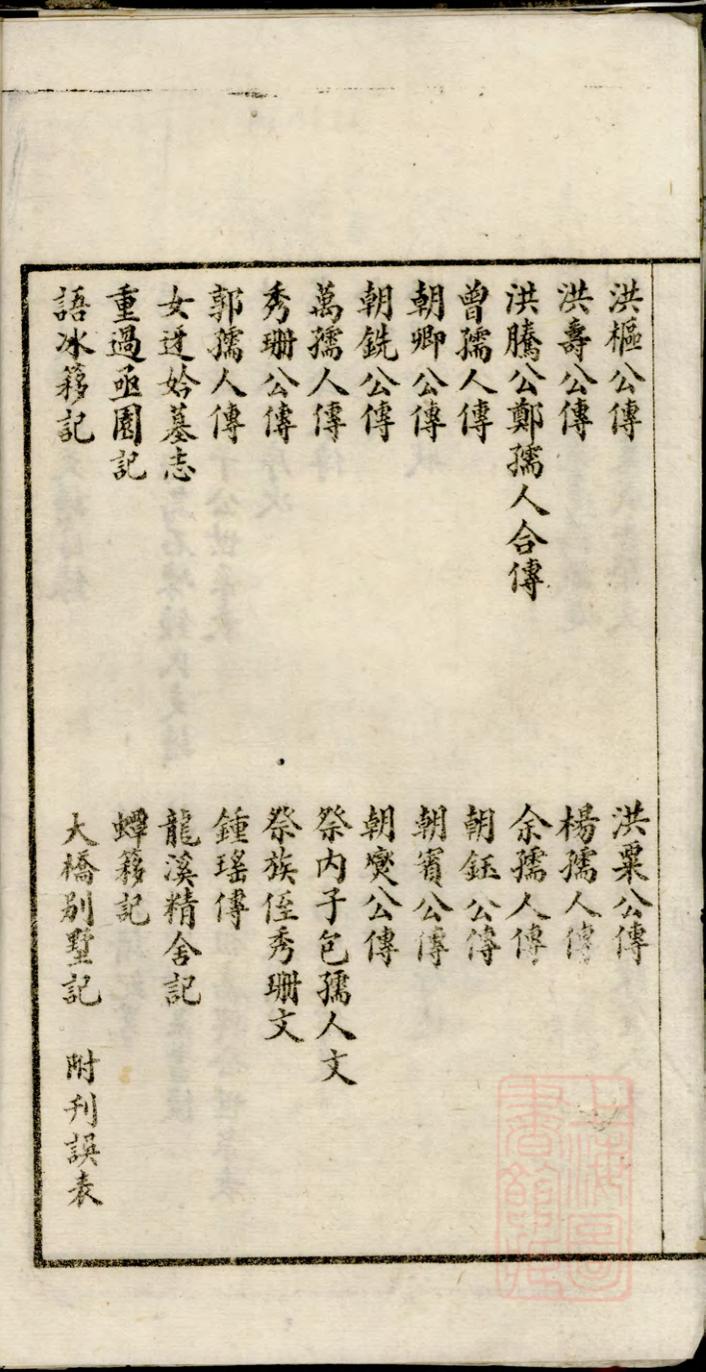 洪樞公傳　洪粟公傳
洪壽公傳　楊孺人傳
洪騰公鄭孺人合傳　余孺人傳
曾孺人傳　朝鈺公傳
朝卿公傳　朝賓公傳
朝銑公傳　朝爕公傳
萬孺人傳　祭內子包孺人文
秀珊公傳　祭族侄秀珊文
郭孺人傳　鍾瑤傳
女迓姈墓志　龍溪精舍記
重過亟園記　蟫簃記
語冰簃記　大橋別墅記　附刊誤表
上海圖書館藏